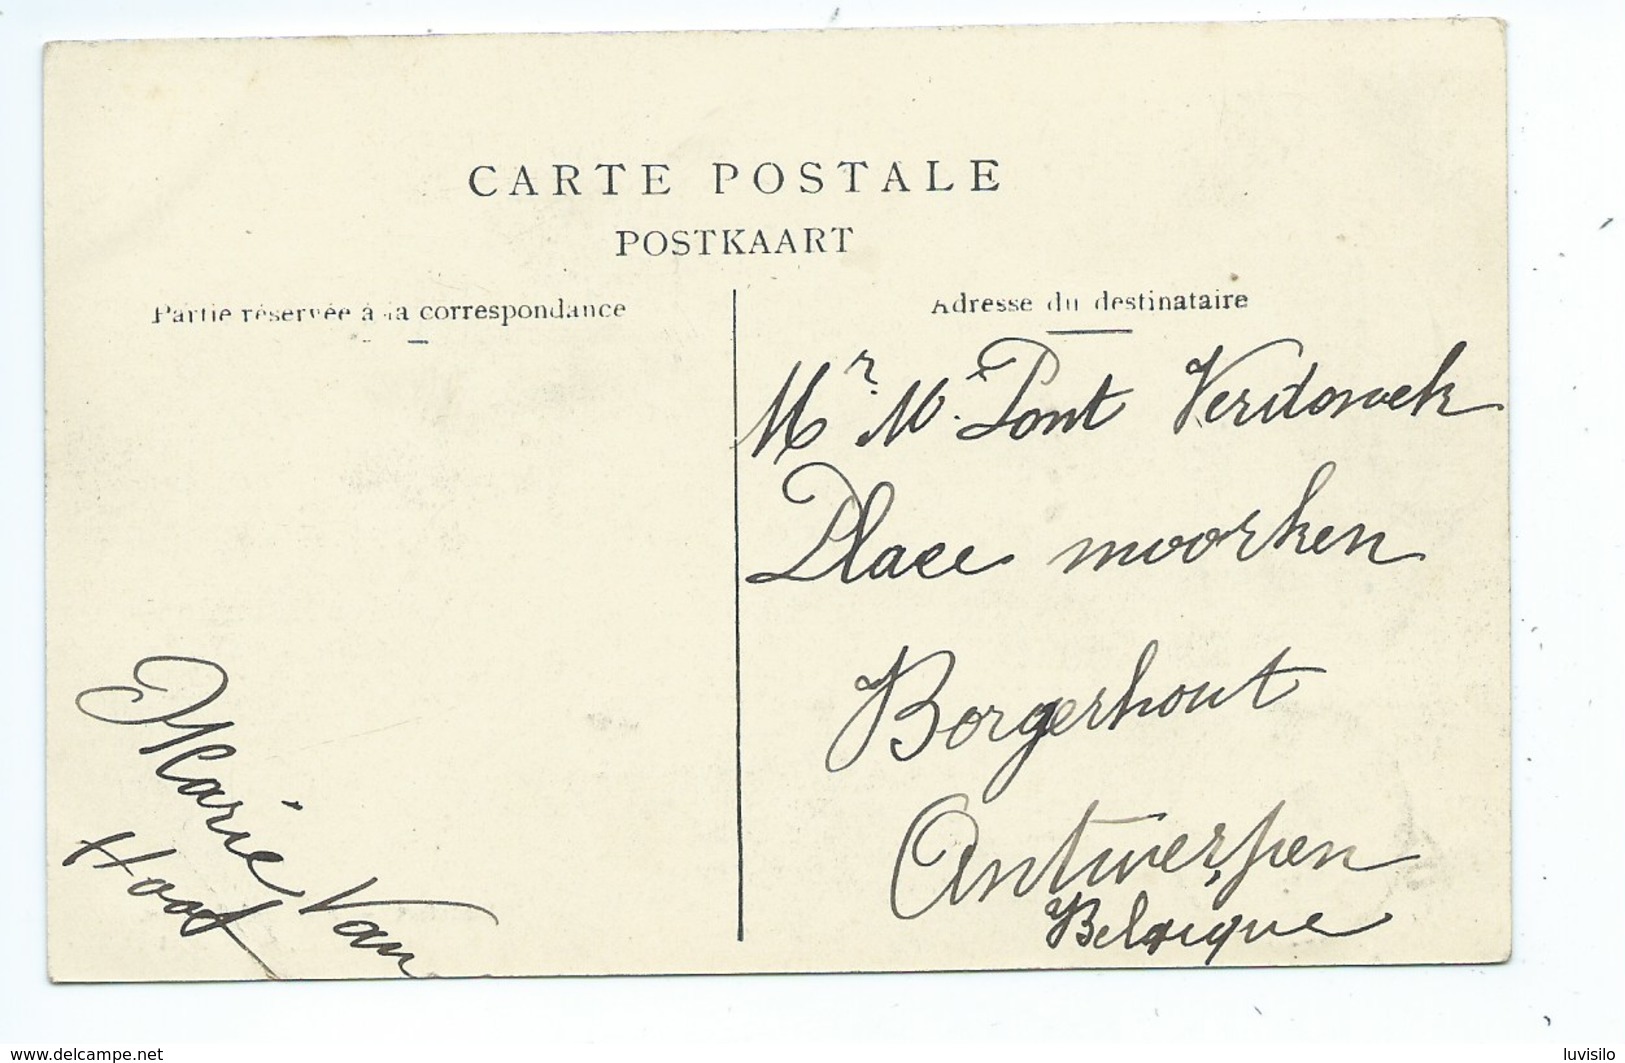 CARTE POSTALE
POSTKAART
Partie réservée à la correspondance
Adresse du destinataire
Mr M. Pont Verdonck
Place moorken
Borgerhout
Antwerpen
Belgique
Marie Van
Hoof
www.delcampe.net
luvisilo